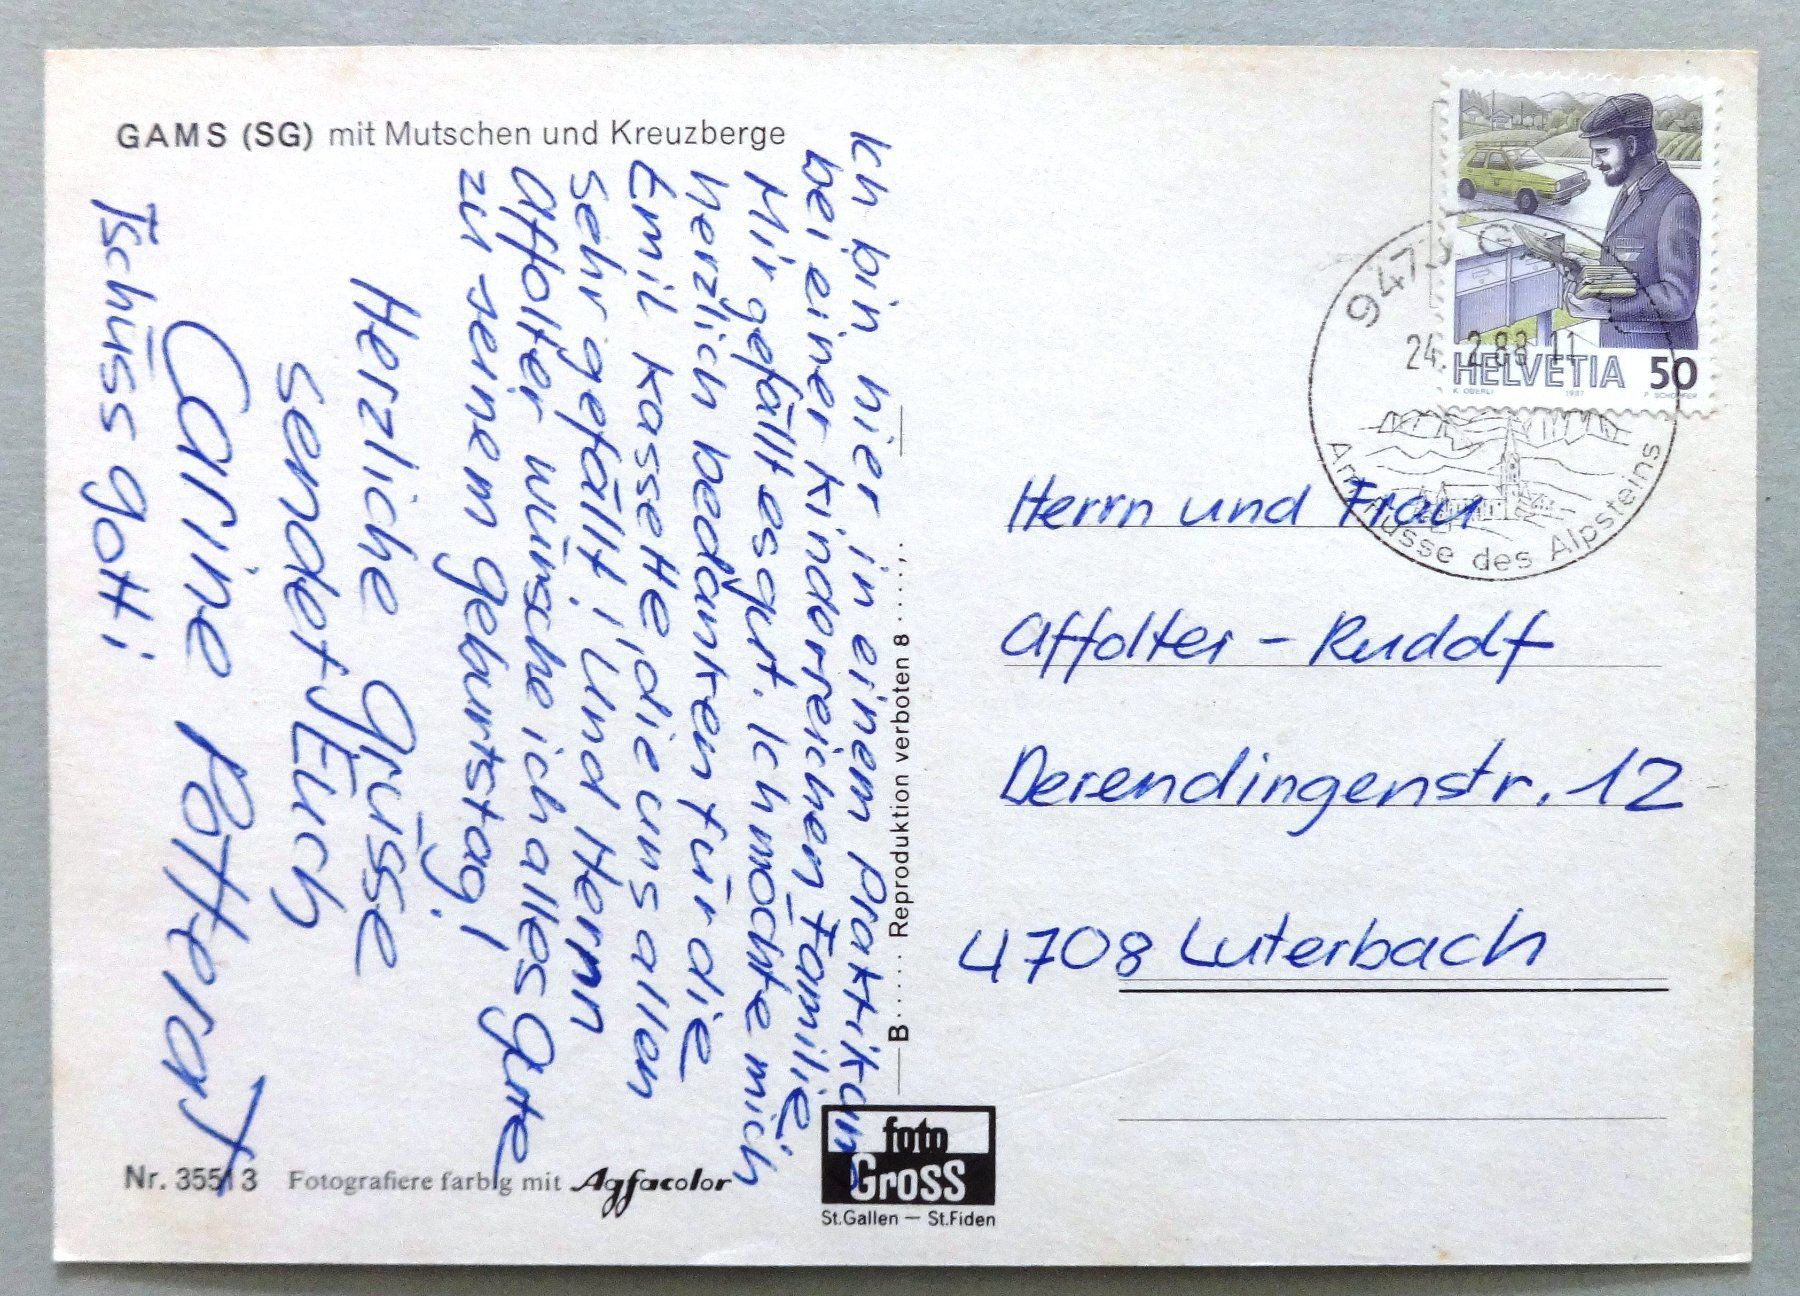 GAMS (SG) mit Mutschen und Kreuzberge
Ich bin hier in einem Praktikum
bei einer kinderreichen Familie,
Mir gefällt es gut. Ich möchte mich
herzlich bedanken für die
Emil Kassette, die uns allen
sehr gefällt! Und Herrn
Affolter wünsche ich alles gute
zu seinem geburtstag!
Herzliche grüsse
sendet Euch
Carine Potterat
Tschüss gotti
Nr. 35513 Fotografiere farbig mit Agfacolor
B..... Reproduktion verboten 8
foto
GROSS
St.Gallen – St.Fiden
HELVETIA 50
K. OBERLI 1987 P. SCHOPFER
947
24. 2.88 11
Am Fusse des Alpsteins
Herrn und Frau
Affolter – Rudolf
Derendingenstr. 12
4708 Luterbach